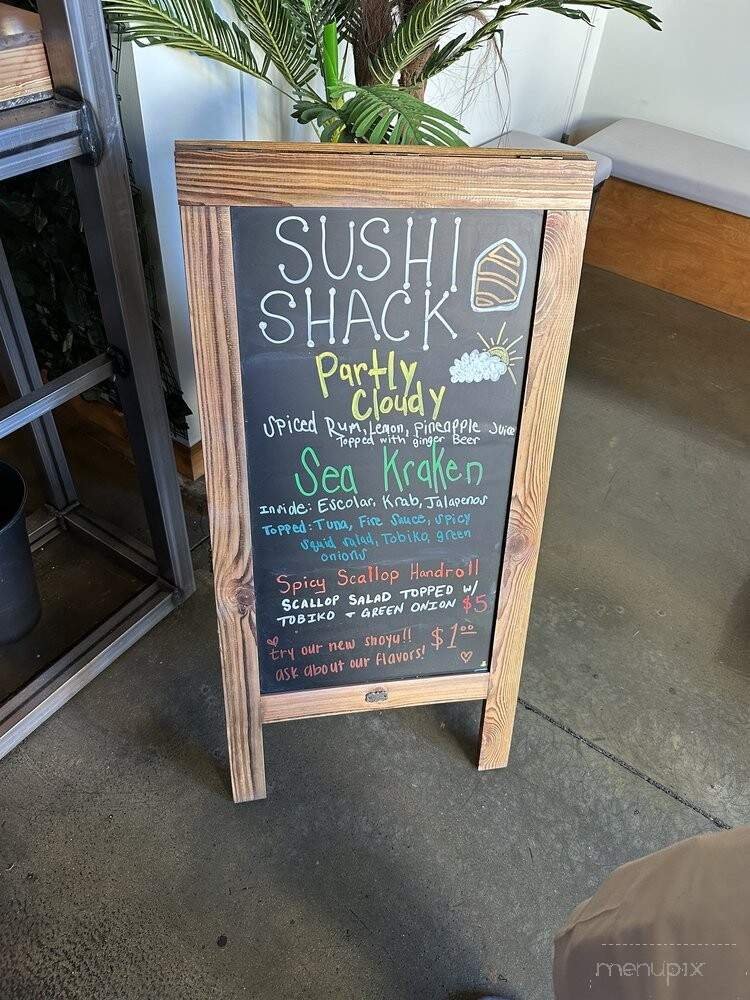 SUSHI
SHACK
Partly
Cloudy
Spiced Rum, Lemon, pineapple Juice
Topped with ginger Beer
Sea Kraken
Inside: Escolar, Krab, Jalapenos
Topped: Tuna, Fire Sauce, spicy
squid salad, Tobiko, green
onions
Spicy Scallop Handroll
SCALLOP SALAD TOPPED W/
TOBIKO + GREEN ONION $5
try our new shoyu!! $1.00
ask about our flavors!
menupix